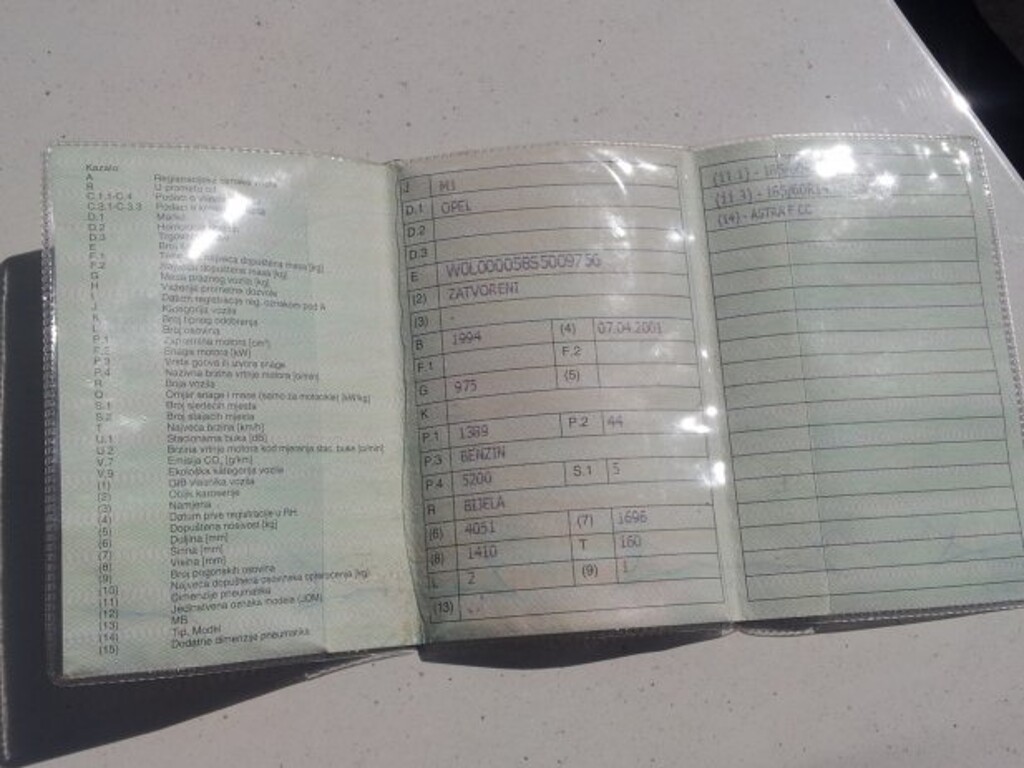 Kazalo
A Registracijska oznaka vozila
B U prometu od
C.1.1-C.4 Podaci o
C.3.1-C.3.3 Podaci o
D.1 Marka
D.2
D.3
E Broj
F.1 najveća dopuštena masa [kg]
F.2 Najveća dopuštena masa [kg]
G Masa praznog vozila [kg]
H Važenje prometne dozvole
I Datum registracije reg. oznakom pod A
J Kategorija vozila
K Broj tipnog odobrenja
L Broj osovina
P.1 Zapremina motora [cm³]
P.2 Snaga motora [kW]
P.3 Vrsta goriva ili izvora snage
P.4 Nazivna brzina vrtnje motora [o/min]
R Boja vozila
Q Omjer snage i mase (samo za motocikle) [kW/kg]
S.1 Broj sjedećih mjesta
S.2 Broj stajaćih mjesta
T Najveća brzina [km/h]
U.1 Stacionarna buka [dB]
U.2 Brzina vrtnje motora kod mjerenja stac. buke [o/min]
V.7 Emisija CO₂ [g/km]
V.9 Ekološka kategorija vozila
(1) OIB vlasnika vozila
(2) Oblik karoserije
(3) Namjena
(4) Datum prve registracije u RH
(5) Dopuštena nosivost [kg]
(6) Duljina [mm]
(7) Širina [mm]
(8) Visina [mm]
(9) Broj pogonskih osovina
(10) Najveća dopuštena osovinska opterećenja [kg]
(11) Dimenzije pneumatika
(12) Jedinstvena oznaka modela (JOM)
(13) MB
(14) Tip, Model
(15) Dodatne dimenzije pneumatika
J M1
D.1 OPEL
D.2
D.3
E W0L000058S5009756
(2) ZATVORENI
(3) -
B 1994 (4) 07.04.2001
F.1 F.2
G 975 (5)
K
P.1 1389 P.2 44
P.3 BENZIN
P.4 5200 S.1 5
R BIJELA
(6) 4051 (7) 1696
(8) 1410 T 160
L 2 (9) 1
(13)
(11.1) -
(11.3) - 185/60R14
(14) - ASTRA F CC